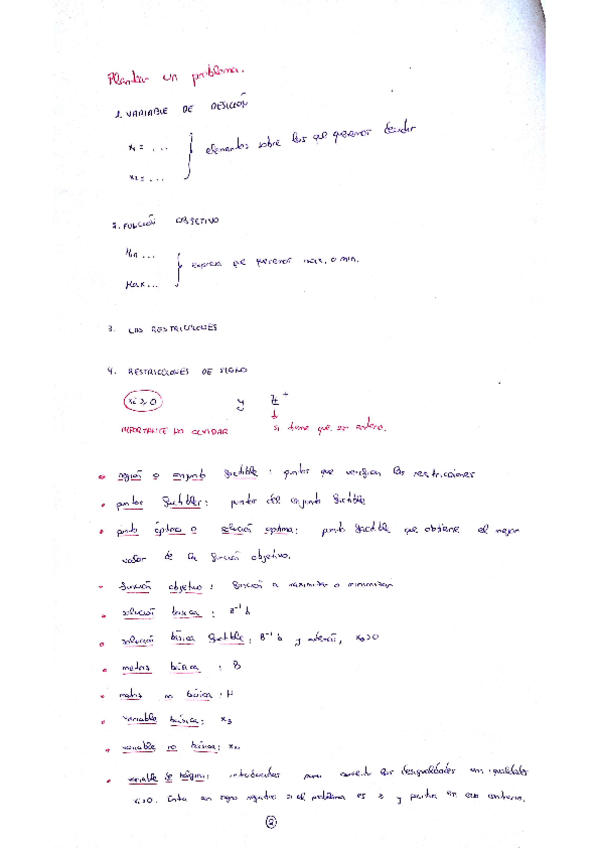 Plantear un problema.
1. VARIABLE DE DESICIÓN
x₁ = ...
elementos sobre los que queremos decidir
x₂ = ...
2. FUNCIÓN OBJETIVO
Min ...
expresa que queremos max. o min.
Max ...
3. LAS RESTRICCIONES
4. RESTRICCIONES DE SIGNO
xi ≥ 0 y Z⁺
IMPORTANTE NO OLVIDAR si tiene que ser entero.
• región o conjunto factible : puntos que verifican las restricciones
• puntos factibles : puntos del conjunto factible
• punto óptimo o solución óptima : punto factible que obtiene el mejor
valor de la función objetivo.
- función objetivo : función a maximizar o minimizar
• solución básica : B⁻¹ b
• solución básica factible : B⁻¹ b y además, > 0
• matriz básica : B
• matriz no básica : N
• variable básica :
• variable no básica :
• variable de holgura : introducidas para convertir las desigualdades en igualdades
≥ 0. Entra con signo negativo si el problema es ≥ y positivo en caso contrario.
2